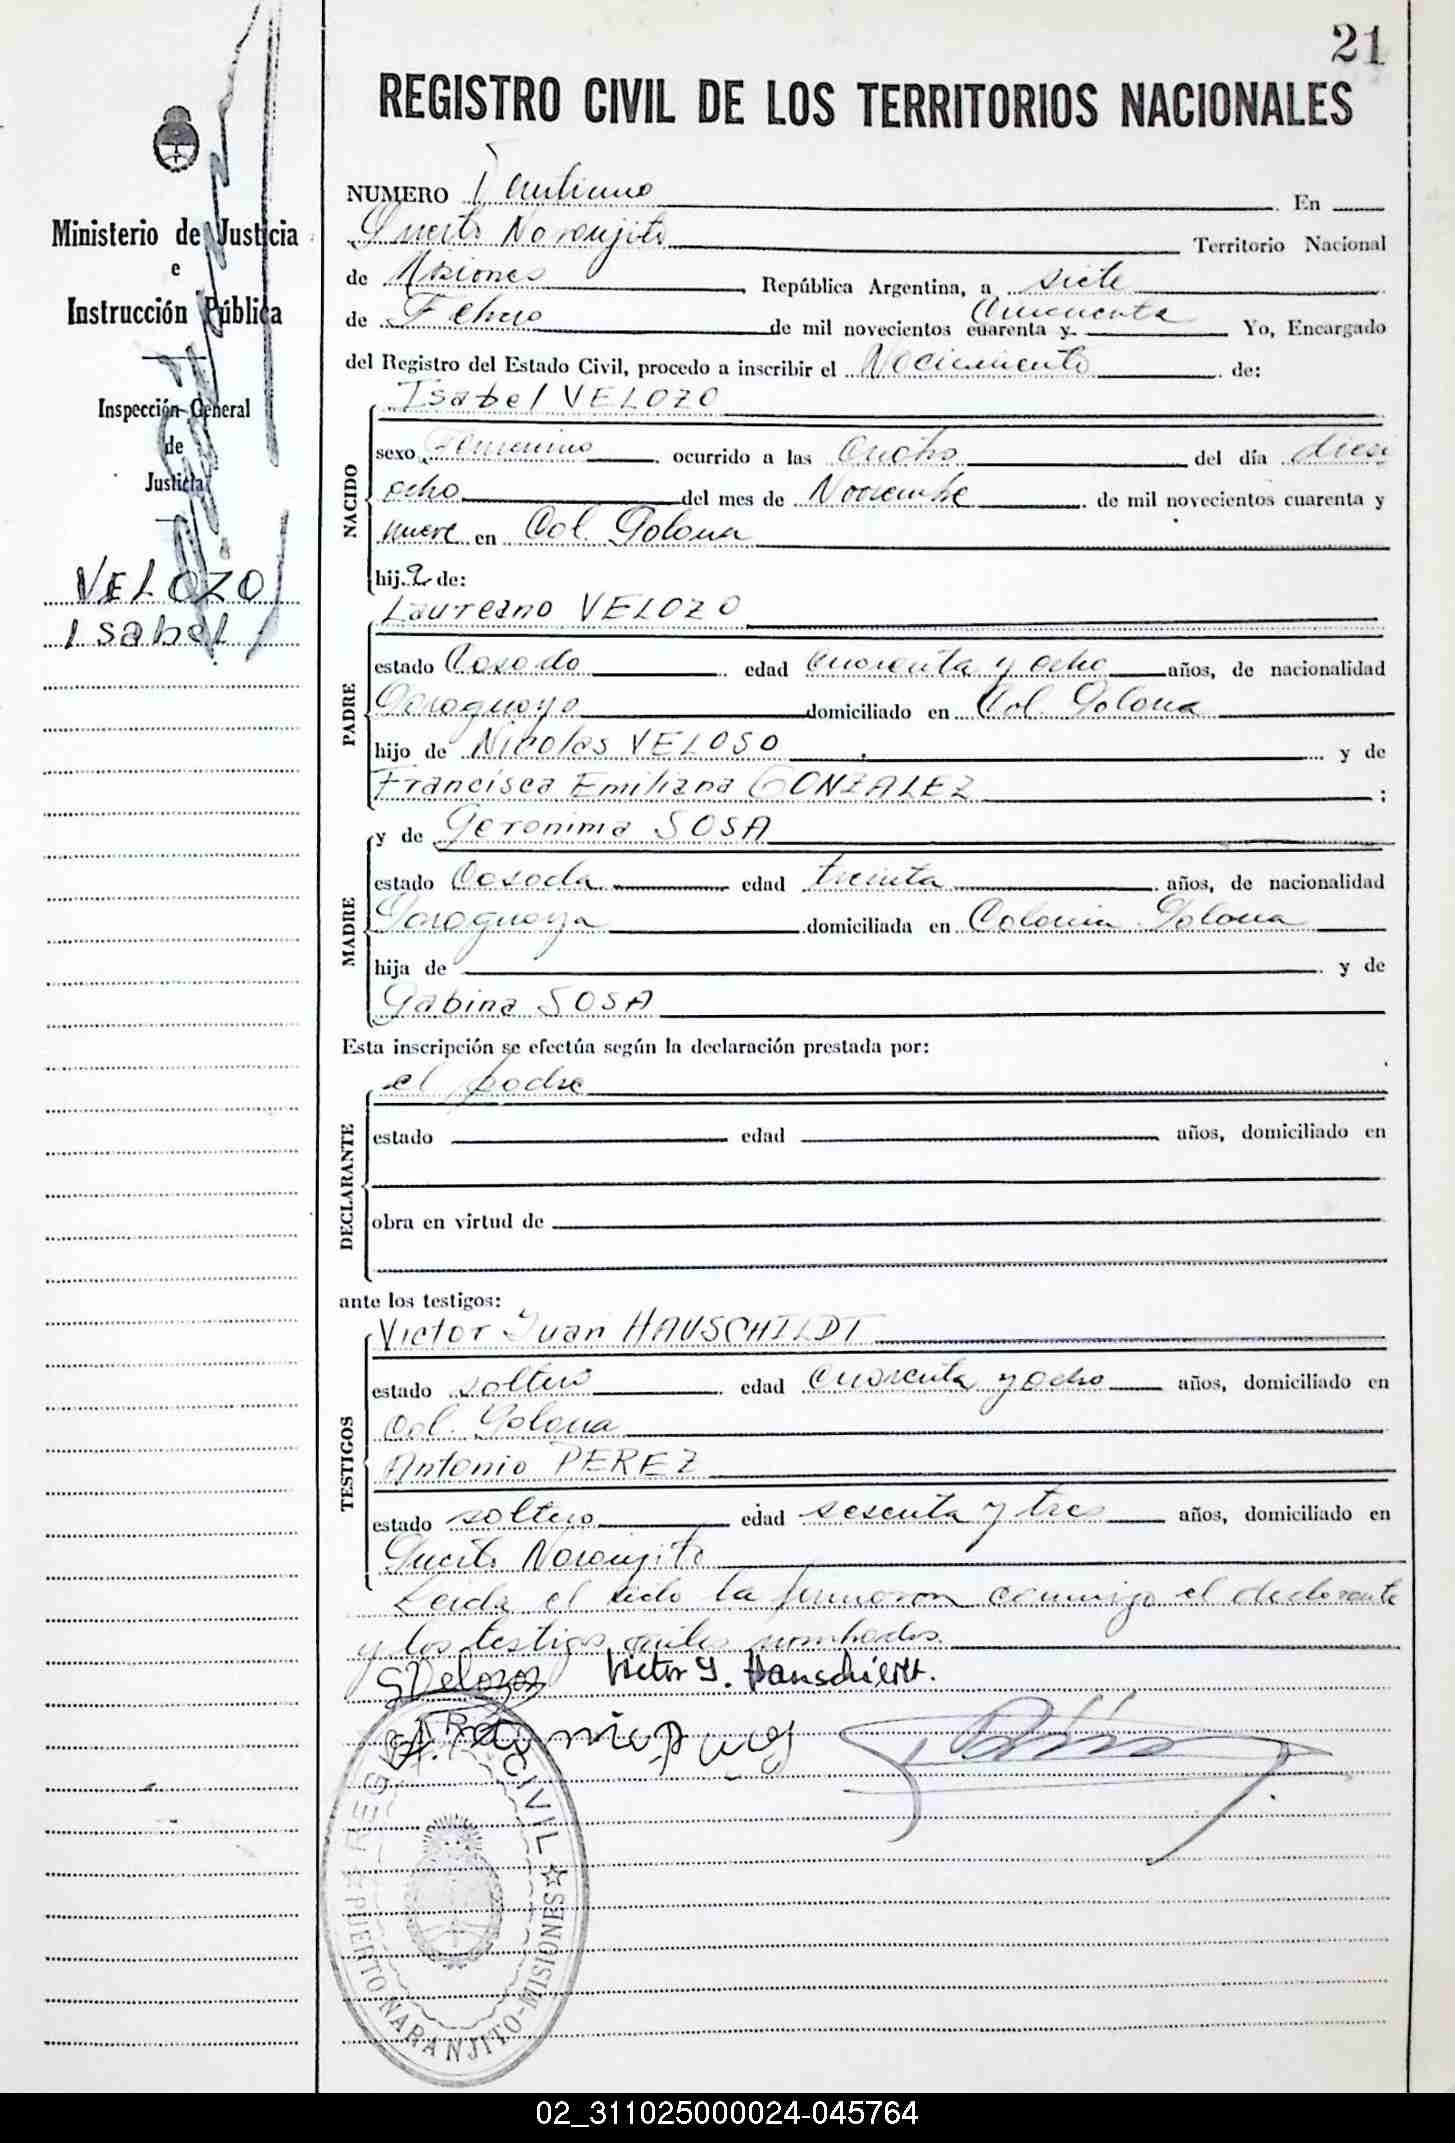 21
REGISTRO CIVIL DE LOS TERRITORIOS NACIONALES
Ministerio de Justicia
e
Instrucción Pública
Inspección General
de
Justicia
VELOZO
Isabel
NUMERO Veintiuno En
Puerto Naranjito Territorio Nacional
de Misiones República Argentina, a siete
de Febrero de mil novecientos cuarenta y cincuenta Yo, Encargado
del Registro del Estado Civil, procedo a inscribir el Nacimiento de:
NACIDO
Isabel VELOZO
sexo Femenino ocurrido a las del día dieci
ocho del mes de Noviembre de mil novecientos cuarenta y
nueve en Col. Polana
hija de:
PADRE
Laureano VELOZO
estado Casado edad cuarenta y ocho años, de nacionalidad
Paraguayo domiciliado en Col. Polana
hijo de Nicolas VELOSO y de
Francisca Emiliana GONZALEZ ;
MADRE
y de Geronima SOSA
estado Casada edad treinta años, de nacionalidad
Paraguaya domiciliada en Colonia Polana
hija de y de
Gabina SOSA
Esta inscripción se efectúa según la declaración prestada por:
DECLARANTE
el padre
estado edad años, domiciliado en
obra en virtud de
ante los testigos:
TESTIGOS
Victor Juan HAUSCHILDT
estado soltero edad cuarenta y ocho años, domiciliado en
Col. Polana
Antonio PEREZ
estado soltero edad sesenta y tres años, domiciliado en
Puerto Naranjito
Leida el acta la firmaron conmigo el declarante
y los testigos antes nombrados.
Velozo Victor J. Hauschildt.
REGISTRO CIVIL
PUERTO NARANJITO-MISIONES
02_311025000024-045764